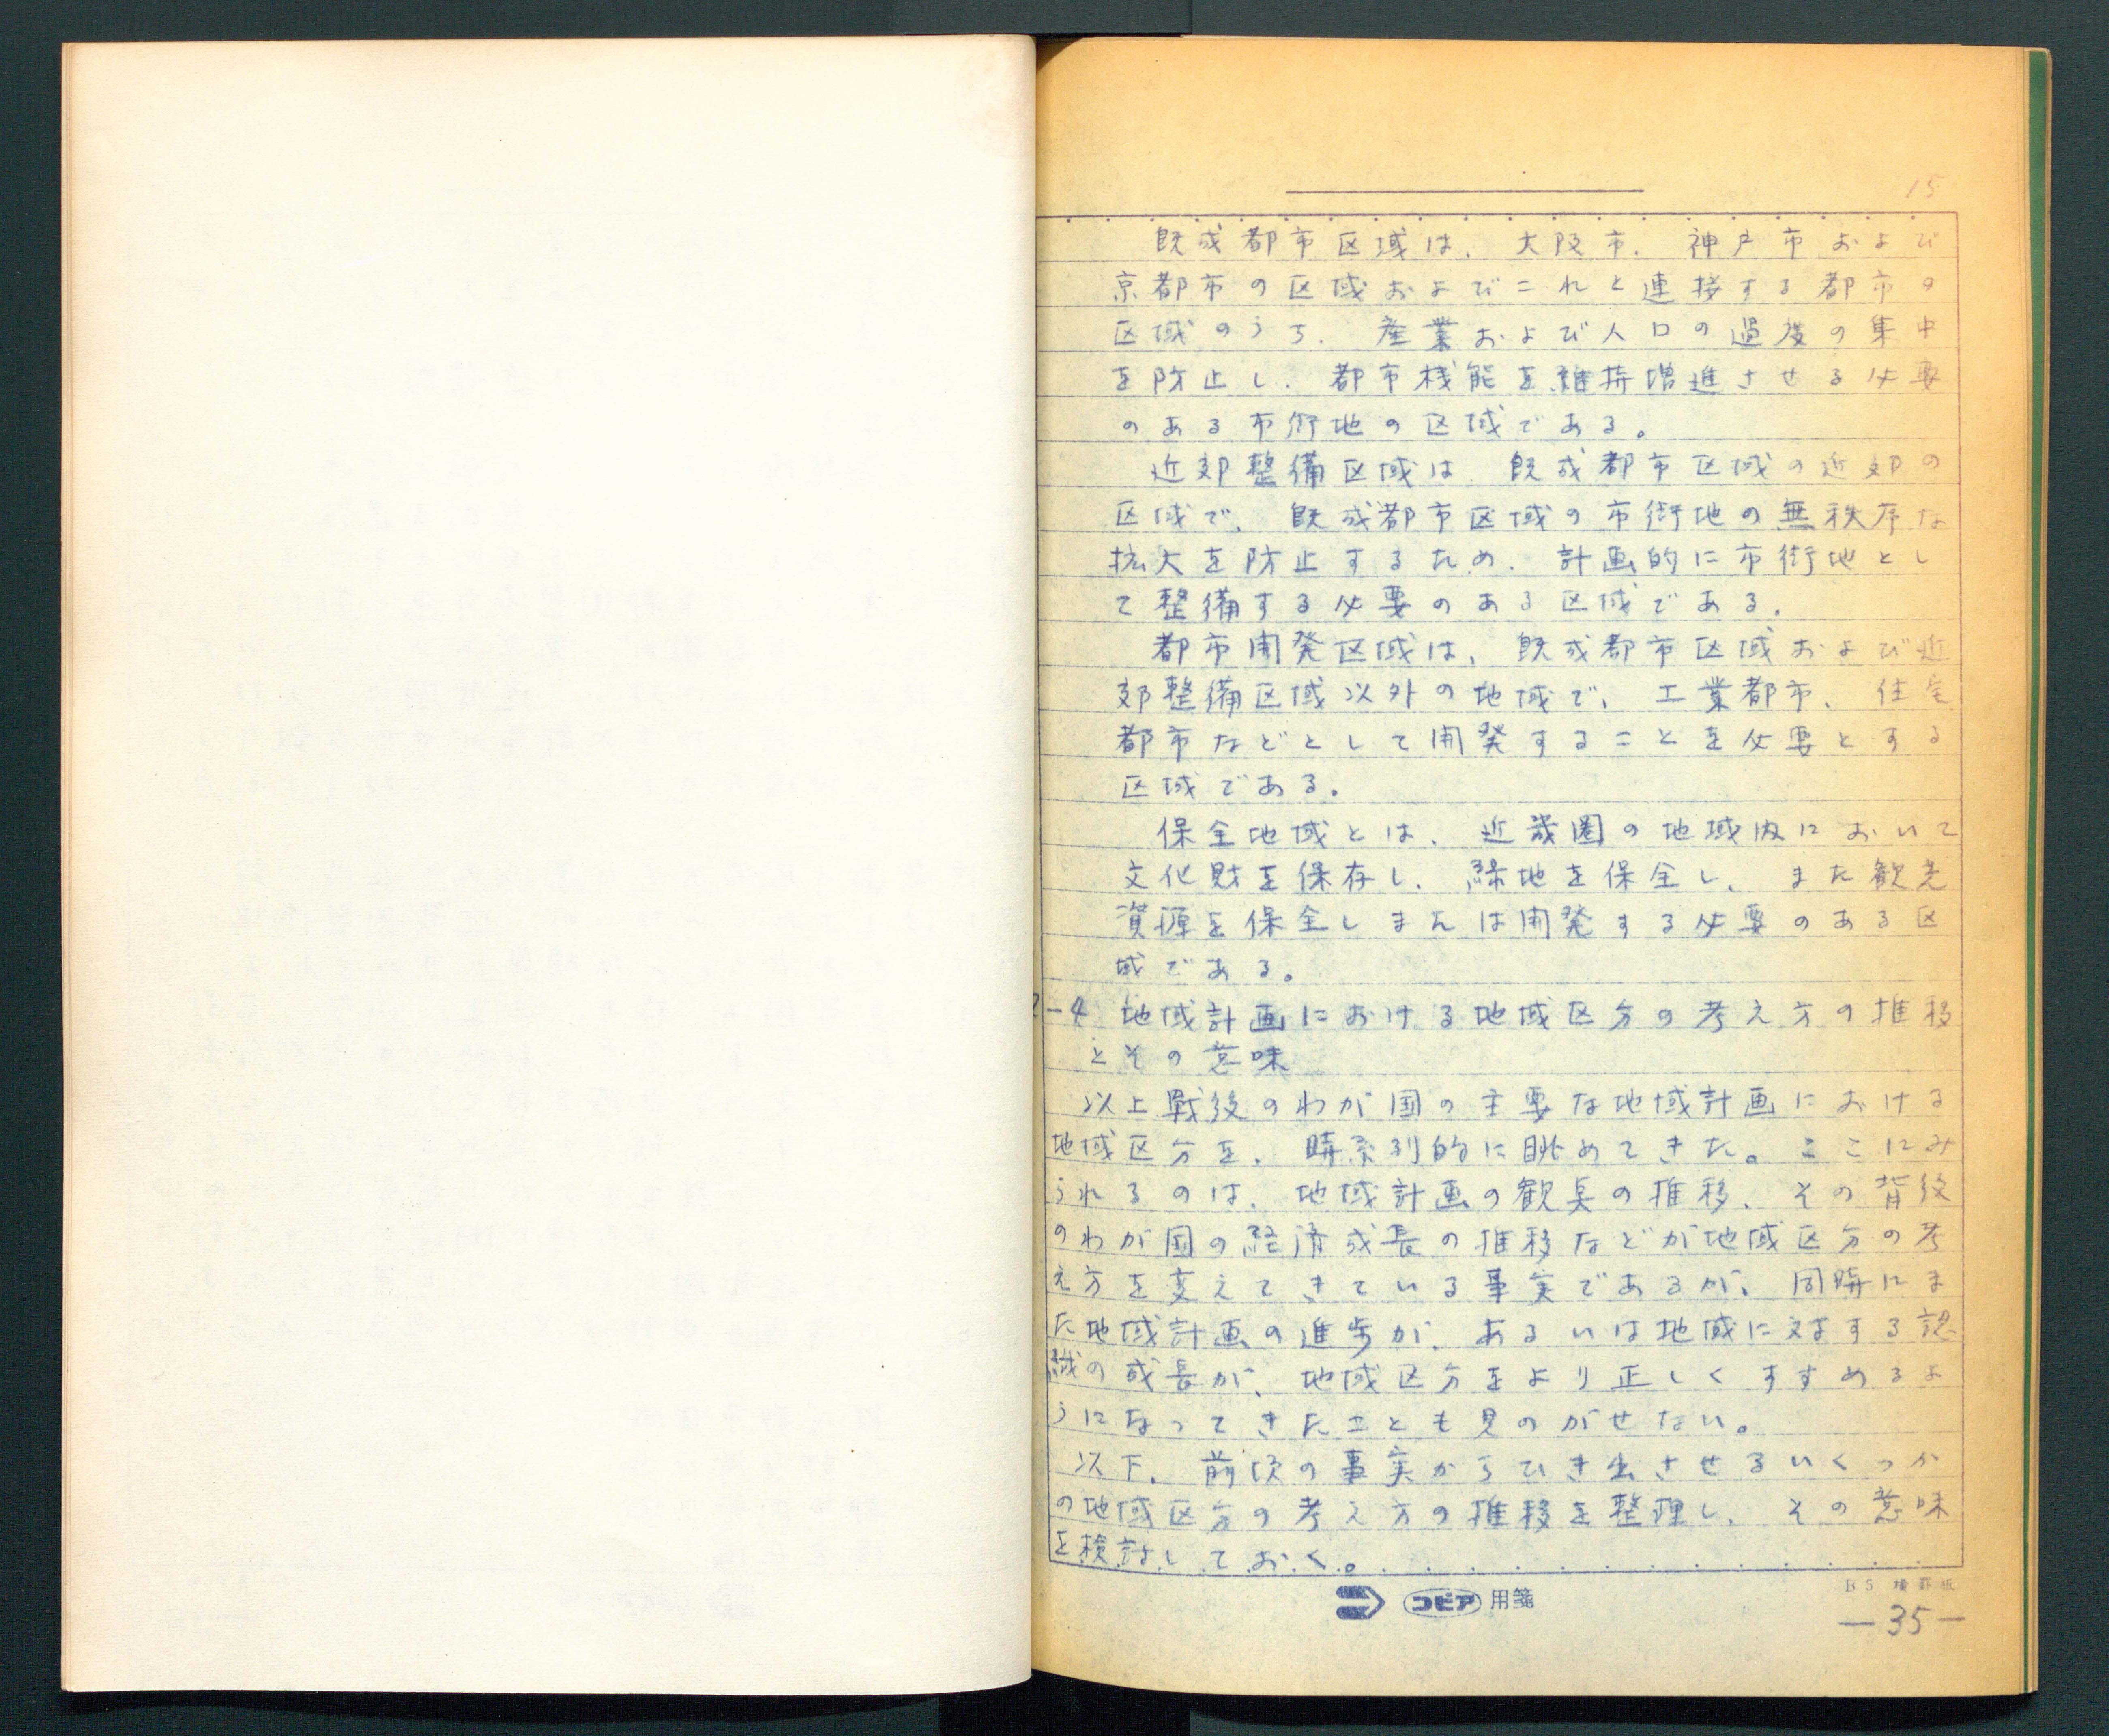 15
既成都市区域は、大阪市、神戸市および
京都市の区域およびこれと連接する都市の
区域のうち、産業および人口の過度の集中
を防止し、都市機能を維持増進させる必要
のある市街地の区域である。
近郊整備区域は、既成都市区域の近郊の
区域で、既成都市区域の市街地の無秩序な
拡大を防止するため、計画的に市街地とし
て整備する必要のある区域である。
都市開発区域は、既成都市区域および近
郊整備区域以外の地域で、工業都市、住宅
都市などとして開発することを必要とする
区域である。
保全地域とは、近畿圏の地域内において
文化財を保存し、緑地を保全し、また観光
資源を保全しまたは開発する必要のある区
域である。
2-4 地域計画における地域区分の考え方の推移
とその意味
以上戦後のわが国の主要な地域計画における
地域区分を、時系列的に眺めてきた。ここにみ
られるのは、地域計画の観点の推移、その背後
のわが国の経済成長の推移などが地域区分の考
え方を変えてきている事実であるが、同時にま
た地域計画の進歩が、あるいは地域に対する認
識の成長が、地域区分をより正しくすすめるよ
うになってきたことも見のがせない。
以下、前項の事実からひき出させるいくつか
の地域区分の考え方の推移を整理し、その意味
を検討しておく。
コピア用箋
B5 横罫紙
—35—